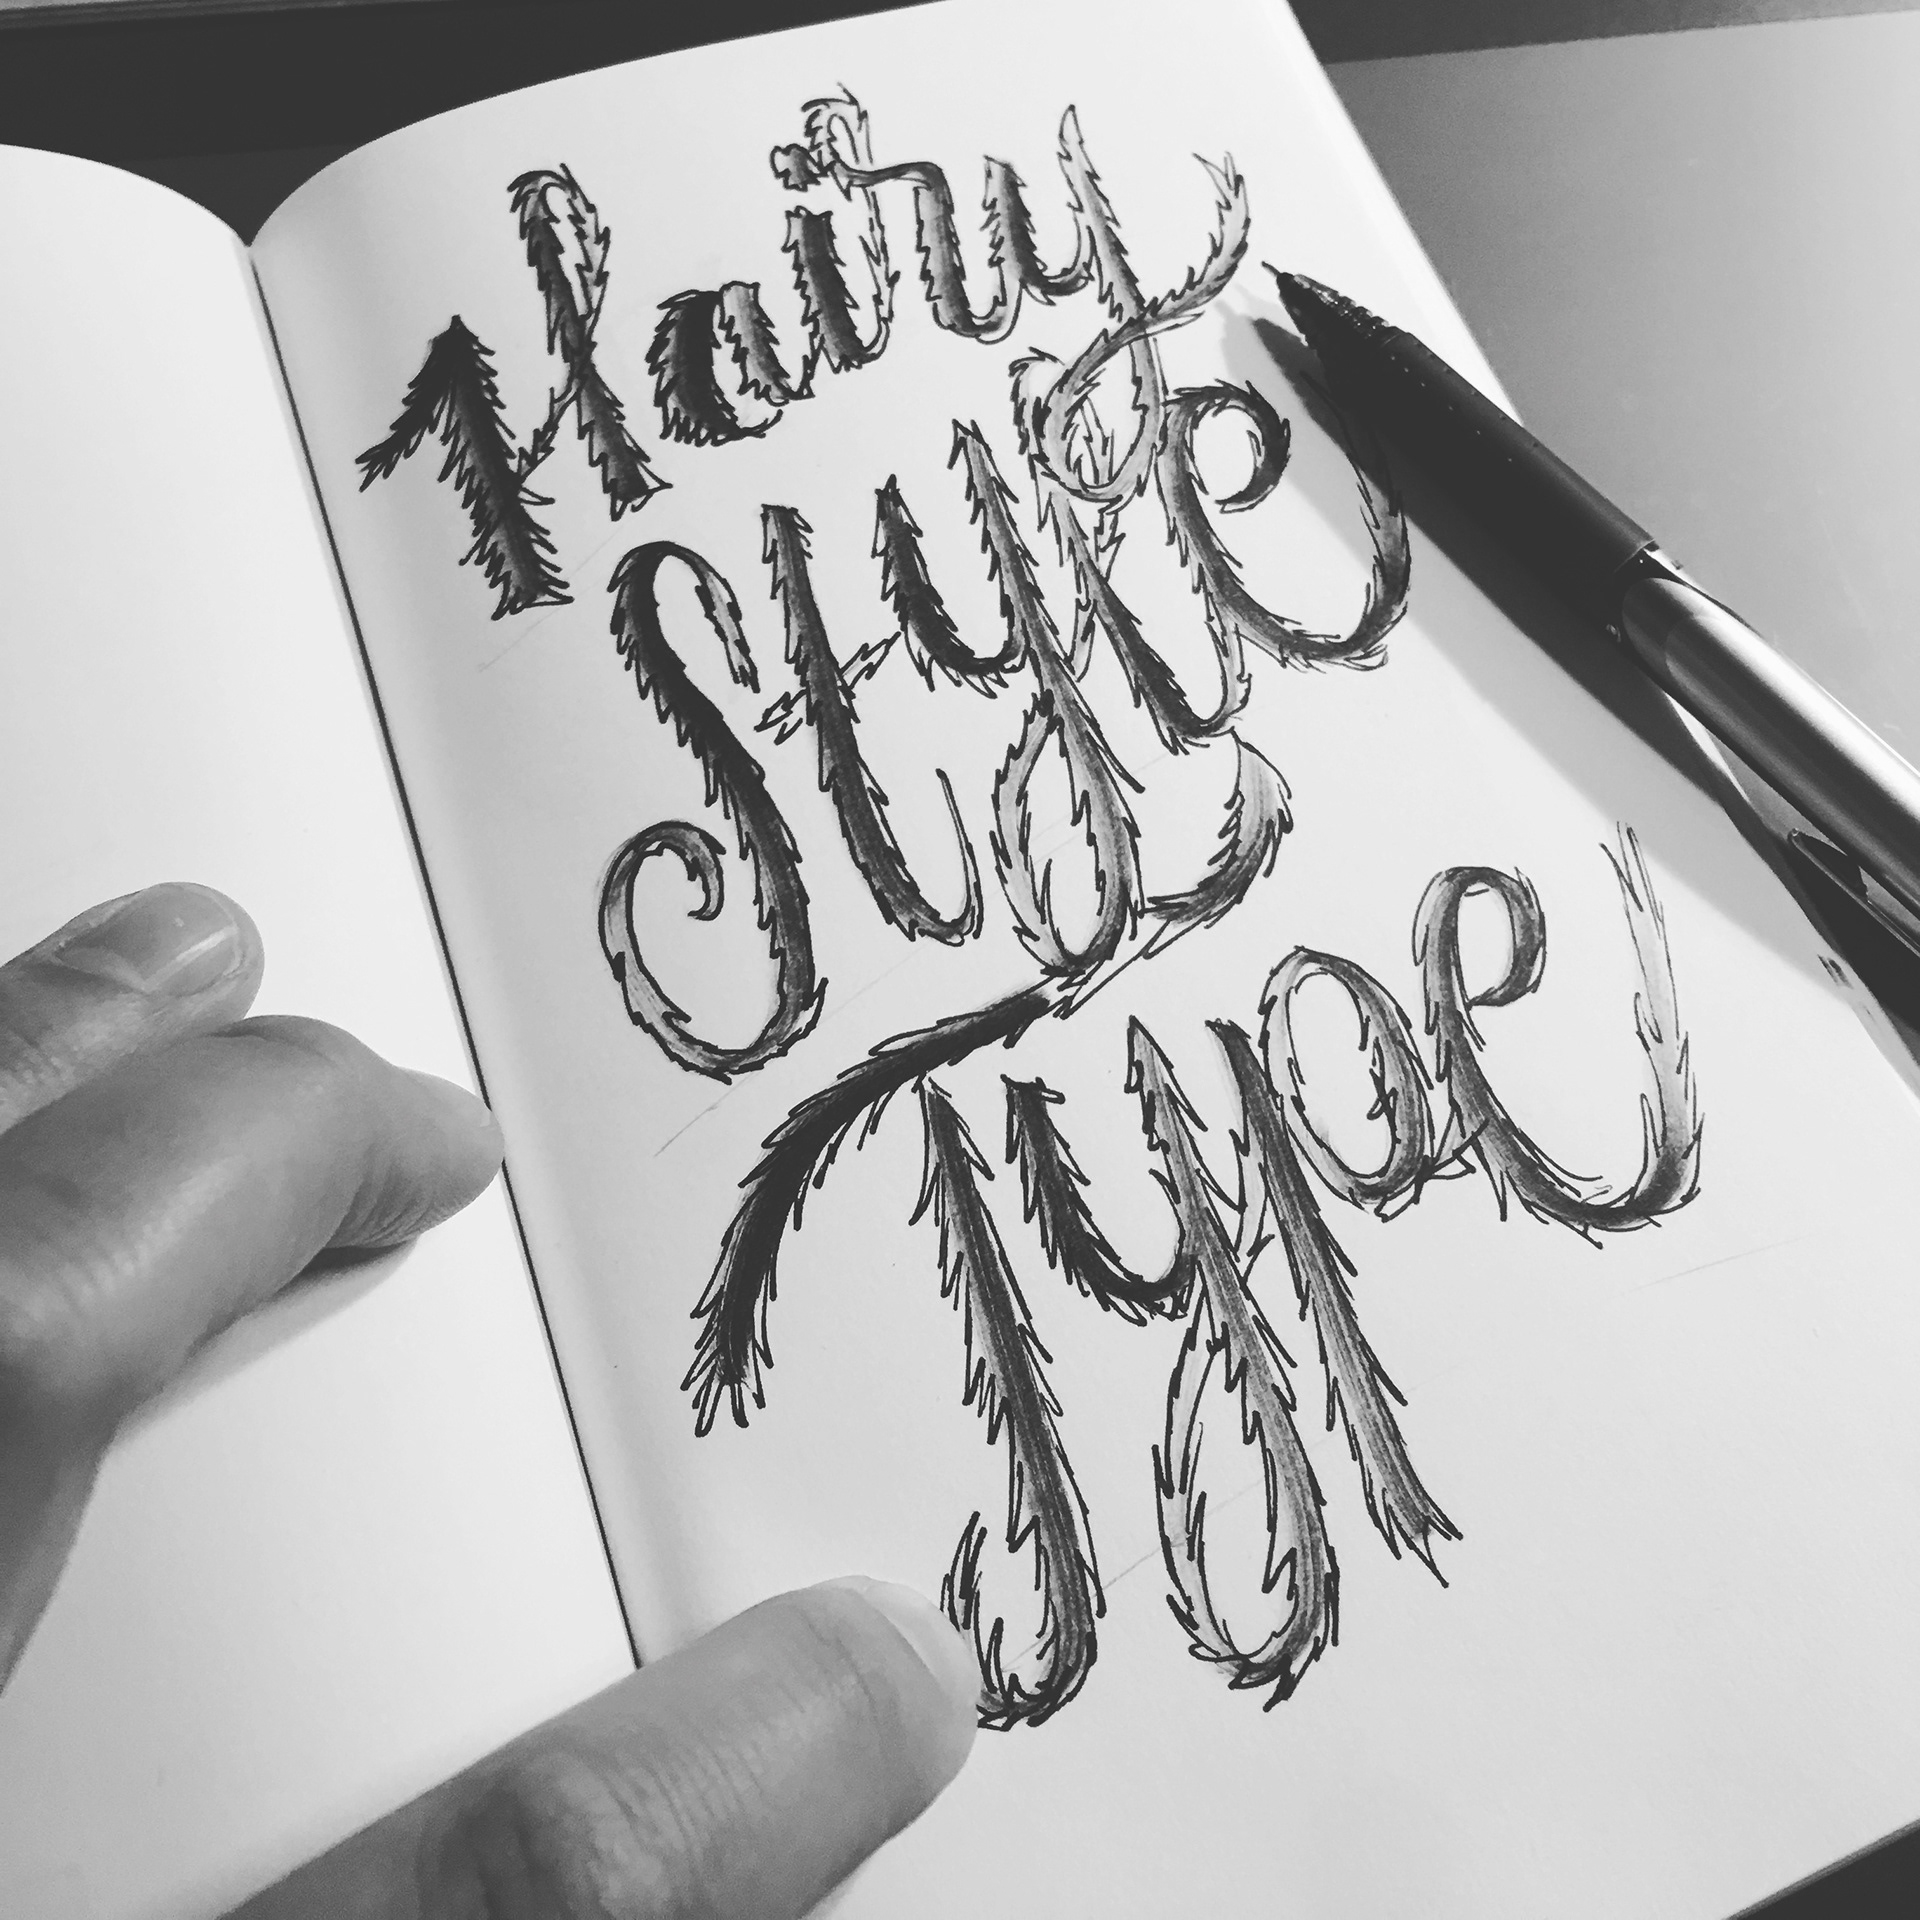 Hairy
Style
Type